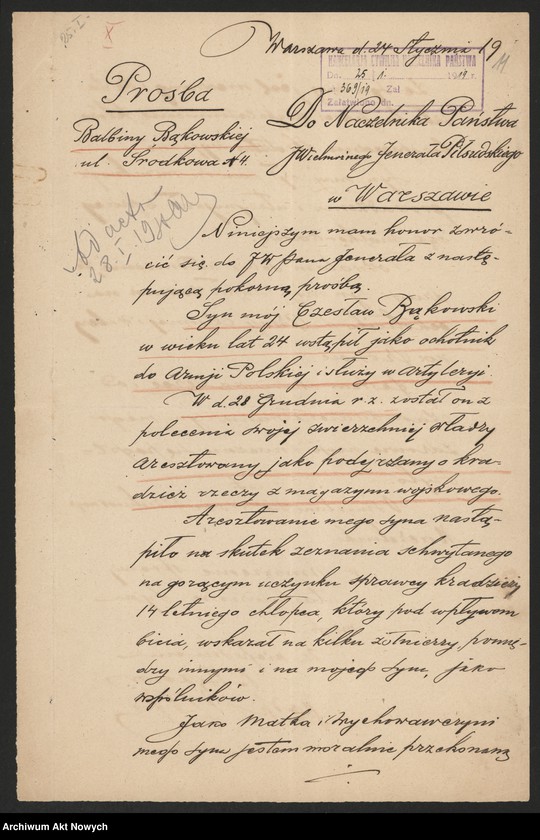 Warszawa d. 24 Stycznia 19
KANCELARJA CYWILNA NACZELNIKA PAŃSTWA
Dn. 25 I 1919 r.
369/19 Zał
Załatwiono dn.
11
X
Prośba
Balbiny Bąkowskiej
ul. Środkowa № 4.
Do Naczelnika Państwa
JWielmożnego Jenerała Piłsudskiego
w Warszawie
ad acta
28 I 19
Niniejszym mam honor zwró-
cić się do JW Pana Jenerała z nastę-
pującą pokorną prośbą.
Syn mój Czesław Bąkowski
w wieku lat 24 wstąpił jako ochotnik
do Armji Polskiej i służy w Artyleryi.
W d. 28 Grudnia r. z. został on z
polecenia swojej zwierzchniej władzy
aresztowany jako podejrzany o kra-
dzież rzeczy z magazynu wojskowego.
Aresztowanie mego syna nastą-
piło na skutek zeznania schwytanego
na gorącym uczynku sprawcy kradzieży
14 letniego chłopca, który pod wpływem
bicia, wskazał na kilku żołnierzy, pomię-
dzy innymi i na mojego syna, jako
wspólników.
Jako Matka i Wychowawczyni
mego syna jestem moralnie przekonaną
Archiwum Akt Nowych